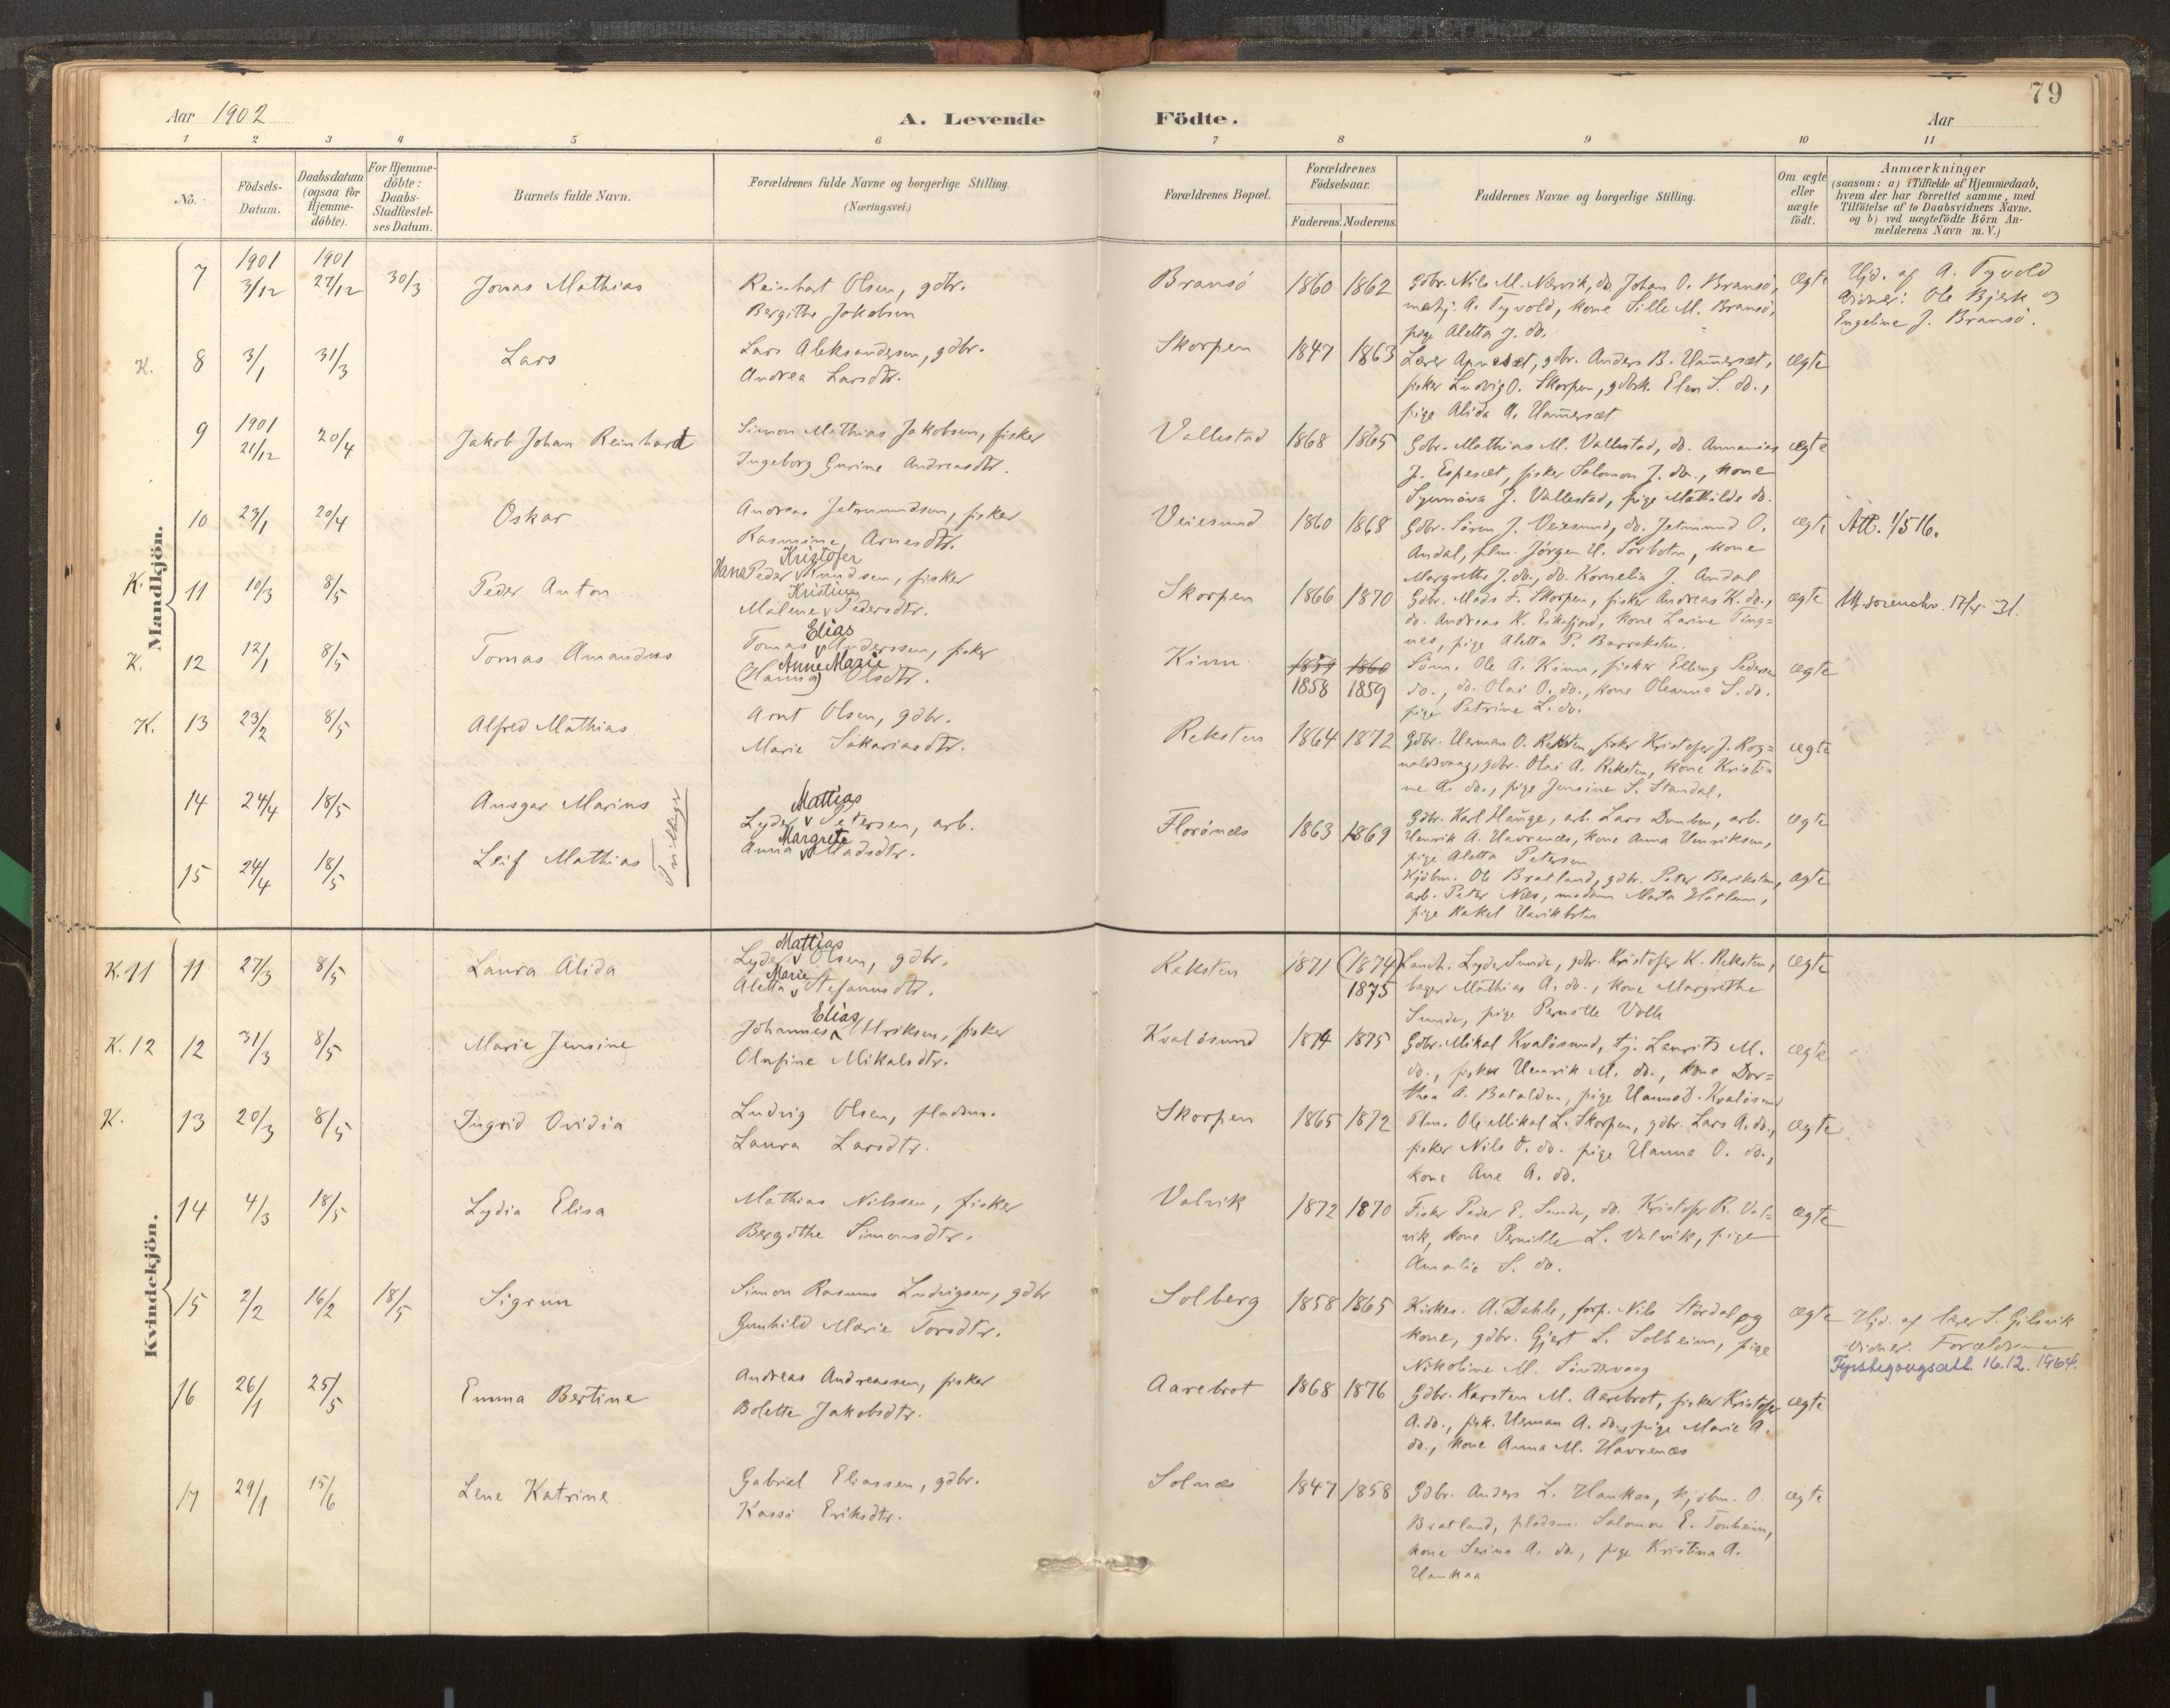 79
Aar 1902 A. Levende Födte. Aar
1 2 3 4 5 6 7 8 9 10 11
No.
Födsels-Datum.
Daabsdatum (ogsaa for Hjemme-döbte).
For Hjemme-döbte: Daabs-Stadfæstel-ses Datum.
Barnets fulde Navn.
Forældrenes fulde Navne og borgerlige Stilling. (Næringsvei.)
Forældrenes Bopæl.
Forældrenes Födselsaar.
Faderens. Moderens.
Faddernes Navne og borgerlige Stilling.
Om ægte eller uægte födt.
Anmærkninger
(saasom: a) i Tilfælde af Hjemmedaab,
hvem der har forrettet samme, med
Tilföielse af to Daabsvidners Navne,
og b) ved uægtefödte Börn An-
melderens Navn m. V.)
Mandkjön.
7 1901 3/12 1901 27/12 30/3 Jonas Mathias
Reinhart Olsen, gdbr.
Bergithe Jakobsen
Bransö 1860 1862
Gdbr. Nils M. Nærvik, do. Johan O. Bransö,
A. Tyvold, kone Sille M. Bransö,
pige Aletta J. do.
ægte
Hjd. af A. Tyvold
Vidner: Ole Bjerk og
Engeline J. Bransö.
K. 8 3/1 31/3 Lars
Lars Aleksandersen, gdbr.
Andrea Larsdtr.
Skorpen 1847 1863
Lærer Apneset, gdbr. Anders B. Ham̄erset,
fisker Ludvig O. Skorpen, gdbrk. Elen S. do.,
pige Alida A. Ham̄erset
ægte
9 1901 21/12 20/4 Jakob Johan Reinhard
Simon Mathias Jakobsen, fisker
Ingeborg Gurine Andreasdtr.
Vallestad 1868 1865
Gdbr. Mathias M. Vallestad, do. Annanias
J. Espeset, fisker Salomon J. do., kone
Synnöva J. Vallestad, pige Mathilde do.
ægte
10 23/1 20/4 Oskar
Andreas Jetmundsen, fisker
Rasmine Arnesdtr.
Veiesund 1860 1868
Gdbr. Sören J. Veiesund, do. Jetmund O.
Andal, plm. Jörgen H. Sörboten, kone
Margrethe J. do., do. Kornelia J. Andal
ægte Att. 1/5 16.
K. 11 10/3 8/5 Peder Anton
Hans Peder Kristofer Knudsen, fisker
Malene Kristine Pedersdtr.
Skorpen 1866 1870
Gdbr. Mads F. Skorpen, fisker Andreas K. do.,
do. Andreas K. Eikefjord, kone Larine Ting=
nes, pige Aletta P. Barreksten.
ægte
K. 12 12/1 8/5 Tomas Amandus
Tomas Elias Anderssen, fisker
(Hanna) Anne Marie Olsdtr.
Kinn 1859 1860
1858 1859
Ole A. Kinn, fisker Elling Pedersen
do., do. Olai O. do., kone Oleanna S. do.
pige Petrine L. do.
ægte
K. 13 23/2 8/5 Alfred Mathias
Arnt Olsen, gdbr.
Marie Sakariasdtr.
Reksten 1864 1872
Gdbr. Herman O. Reksten, fisker Kristofer J. Rog=
naldsvaag, gdbr. Olai A. Reksten, kone Kristi=
ne A. do., pige Jensine S. Standal.
ægte
14 24/4 18/5 Ansgar Marius
Tvillinger
Lyder Mattias Petersen, arb.
Anna Margrete Madsdtr.
Florönæs 1863 1869
Gdbr. Karl Hauge, arb. Lars Domben, arb.
Henrik A. Havrenæs, kone Anna Henriksen,
pige Aletta Petersen
ægte
15 24/4 18/5 Leif Mathias
Kjöbm. Ole Bratland, gdbr. Peter Bareksten,
arb. Peter Næs, madam Marta Hatlem,
pige Rakel Havikboten
ægte
Kvindekjön.
K. 11 11 27/3 8/5 Laura Alida
Lyder Mattias Olsen, gdbr.
Aletta Marie Stefanusdtr.
Reksten 1871 (1874)
1875
Landh. Lyder Sunde, gdbr. Kristofer K. Reksten,
bager Mathias A. do., kone Margrethe
Sunde, pige Pernille Volle
ægte
K. 12 12 31/3 8/5 Marie Jensine
Johannes Elias Henriksen, fisker
Olufine Mikalsdtr.
Kvalösund 1874 1875
Gdbr. Mikal Kvalösund, tj. Laurits M.
do., fisker Henrik M. do., kone Dor=
thea A. Batalden, pige Hanna D. Kvalösund
ægte
K. 13 20/3 8/5 Ingrid Ovidia
Ludvig Olsen, pladsm.
Laura Larsdtr.
Skorpen 1865 1872
Plm. Ole Mikal L. Skorpen, gdbr. Lars A. do.,
fisker Nils O. do. pige Hanna O. do.,
kone Ane A. do.
ægte
14 4/3 18/5 Lydia Elisa
Mathias Nilssen, fisker
Bergithe Simonsdtr.
Valvik 1872 1870
Fisker Peder E. Sunde, do. Kristofer R. Val=
vik, kone Pernille L. Valvik, pige
Amalie S. do.
ægte
15 2/2 16/2 18/5 Sigrun
Simon Rasmus Ludvigsen, gdbr
Gunhild Marie Torsdtr.
Solberg 1858 1865
Kirkes. A. Dahle, forp. Nils Stördal og
kone, gdbr. Gjert L. Solheim, pige
Nikoline M. Söndervaag
ægte
Hjd. af lærer S. Gilsvik
Vidner: Forældrene
Fyrstegongsatt. 16.12.1964.
16 26/1 25/5 Emma Bertine
Andreas Andreassen, fisker
Bolette Jakobsdtr.
Aarebrot 1868 1876
Gdbr. Karsten M. Aarebrot, fisker Kristofer
A. do., fisk. Herman A. do., pige Marie A.
do., kone Anna M. Havrenæs
ægte
17 29/1 15/6 Lene Katrine
Gabriel Eliassen, gdbr.
Kassi Eriksdtr.
Solnæs 1847 1858
Gdbr. Anders L. Haukaa, kjöbm. O.
Bratland, pladsm. Salomon E. Tonheim,
kone Serina A. do., pige Kristina A.
Haukaa
ægte